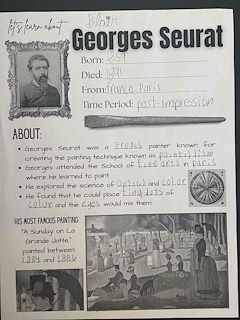 let's learn about
Blair
Georges Seurat
Born: 1859
Died: 1891
From: france Paris
Time Period: post-impression
ABOUT:
• Georges Seurat was a French painter known for
creating the painting technique known as pointillism
• Georges attended the School of fine arts in paris
where he learned to paint.
• He explored the science of optics and color
• He found that he could place tiny dots of
color and the eyes would mix them.
HIS MOST FAMOUS PAINTING:
'A Sunday on La
Grande Jatte,'
painted between
1884 and 1886